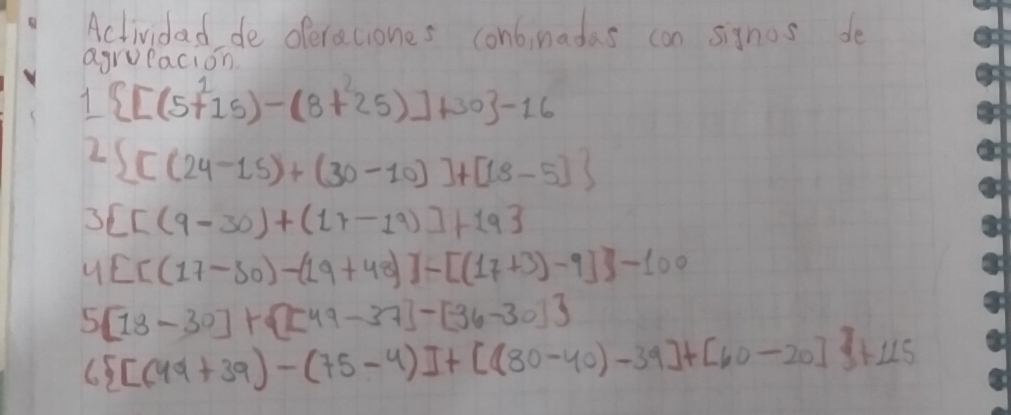 Actividad de operaciones combinadas con signos de
agrupación.
1 {[(5+15)-(8+25)]+30}-16
2 {[(24-15)+(30-10)]+[18-5]}
3[[(9-30)+(17-19)]+19}
4[[(17-30)-(19+48)]-[(17+3)-9]}-100
5[18-30]+{[49-37]-[36-30]}
6{[(49+39)-(75-4)]+[(80-40)-39]+[60-20]}+115